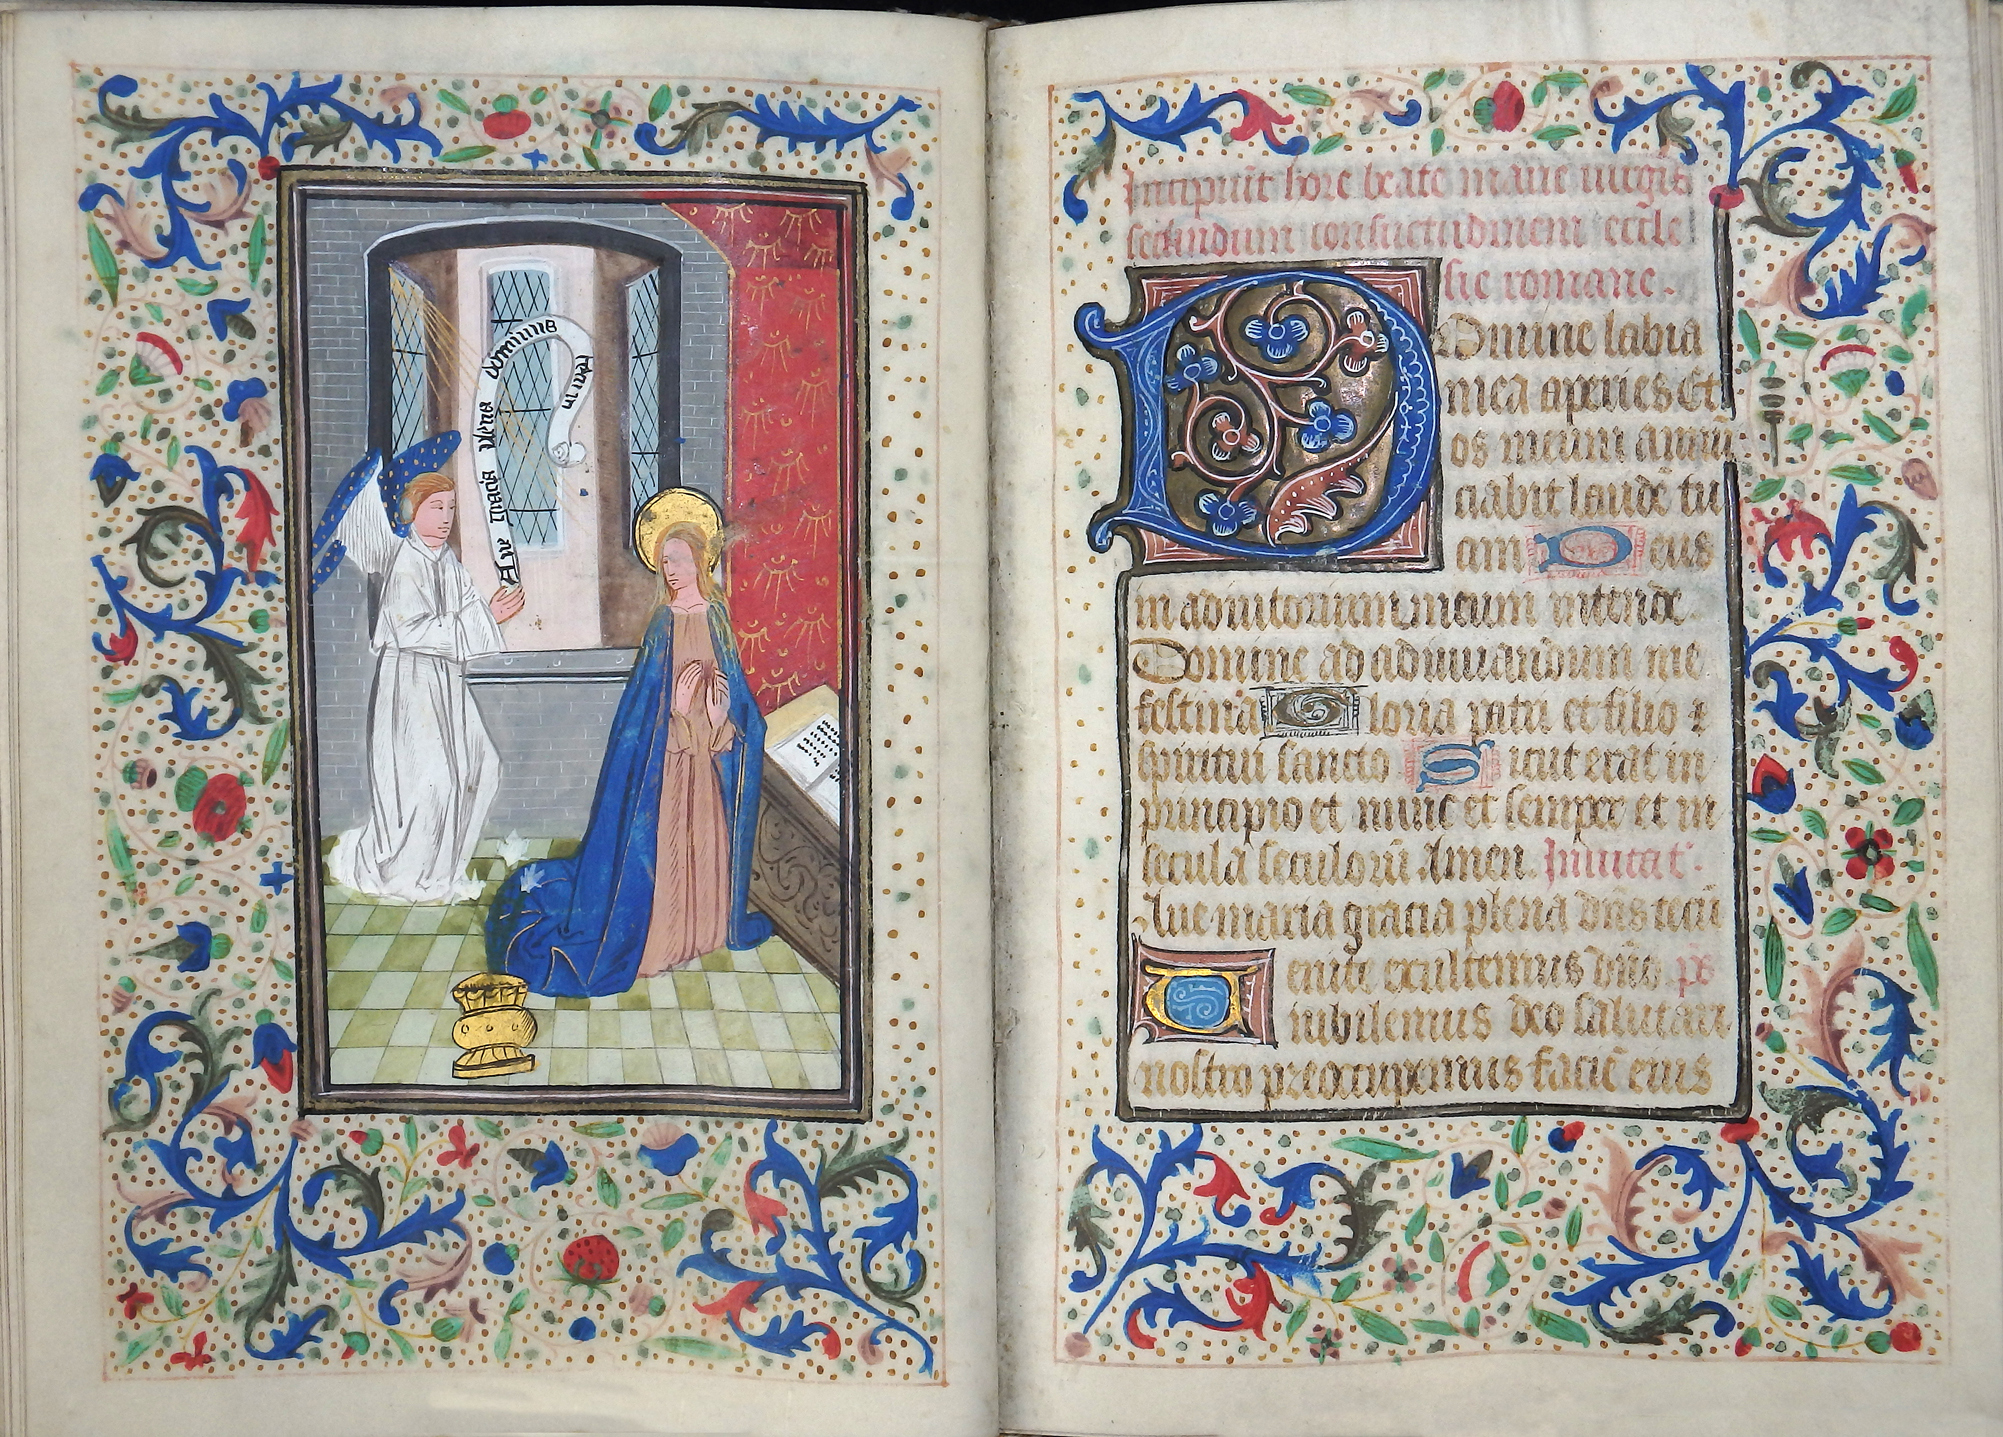 Ave maria plena dominus tecum
Incipiūt hore beate marie uirgis
secundum consuetudinem eccle
sie romane.
Domine labia
mea aperies Et
os meum annū
ciabit laudē tu
am Deus
in adiutorium meum intende
Domine ad adiuuandum me
festina Gloria patri et filio ⁊
spiritui sancto Sicut erat in
principio et nunc et semper et in
secula seculorū Amen. Inuitat'.
Aue maria gracia plena dn̄s tecū
Uenite exultemus dn̄o ps
iubilemus deo salutari
nostro preoccupemus faciē eius